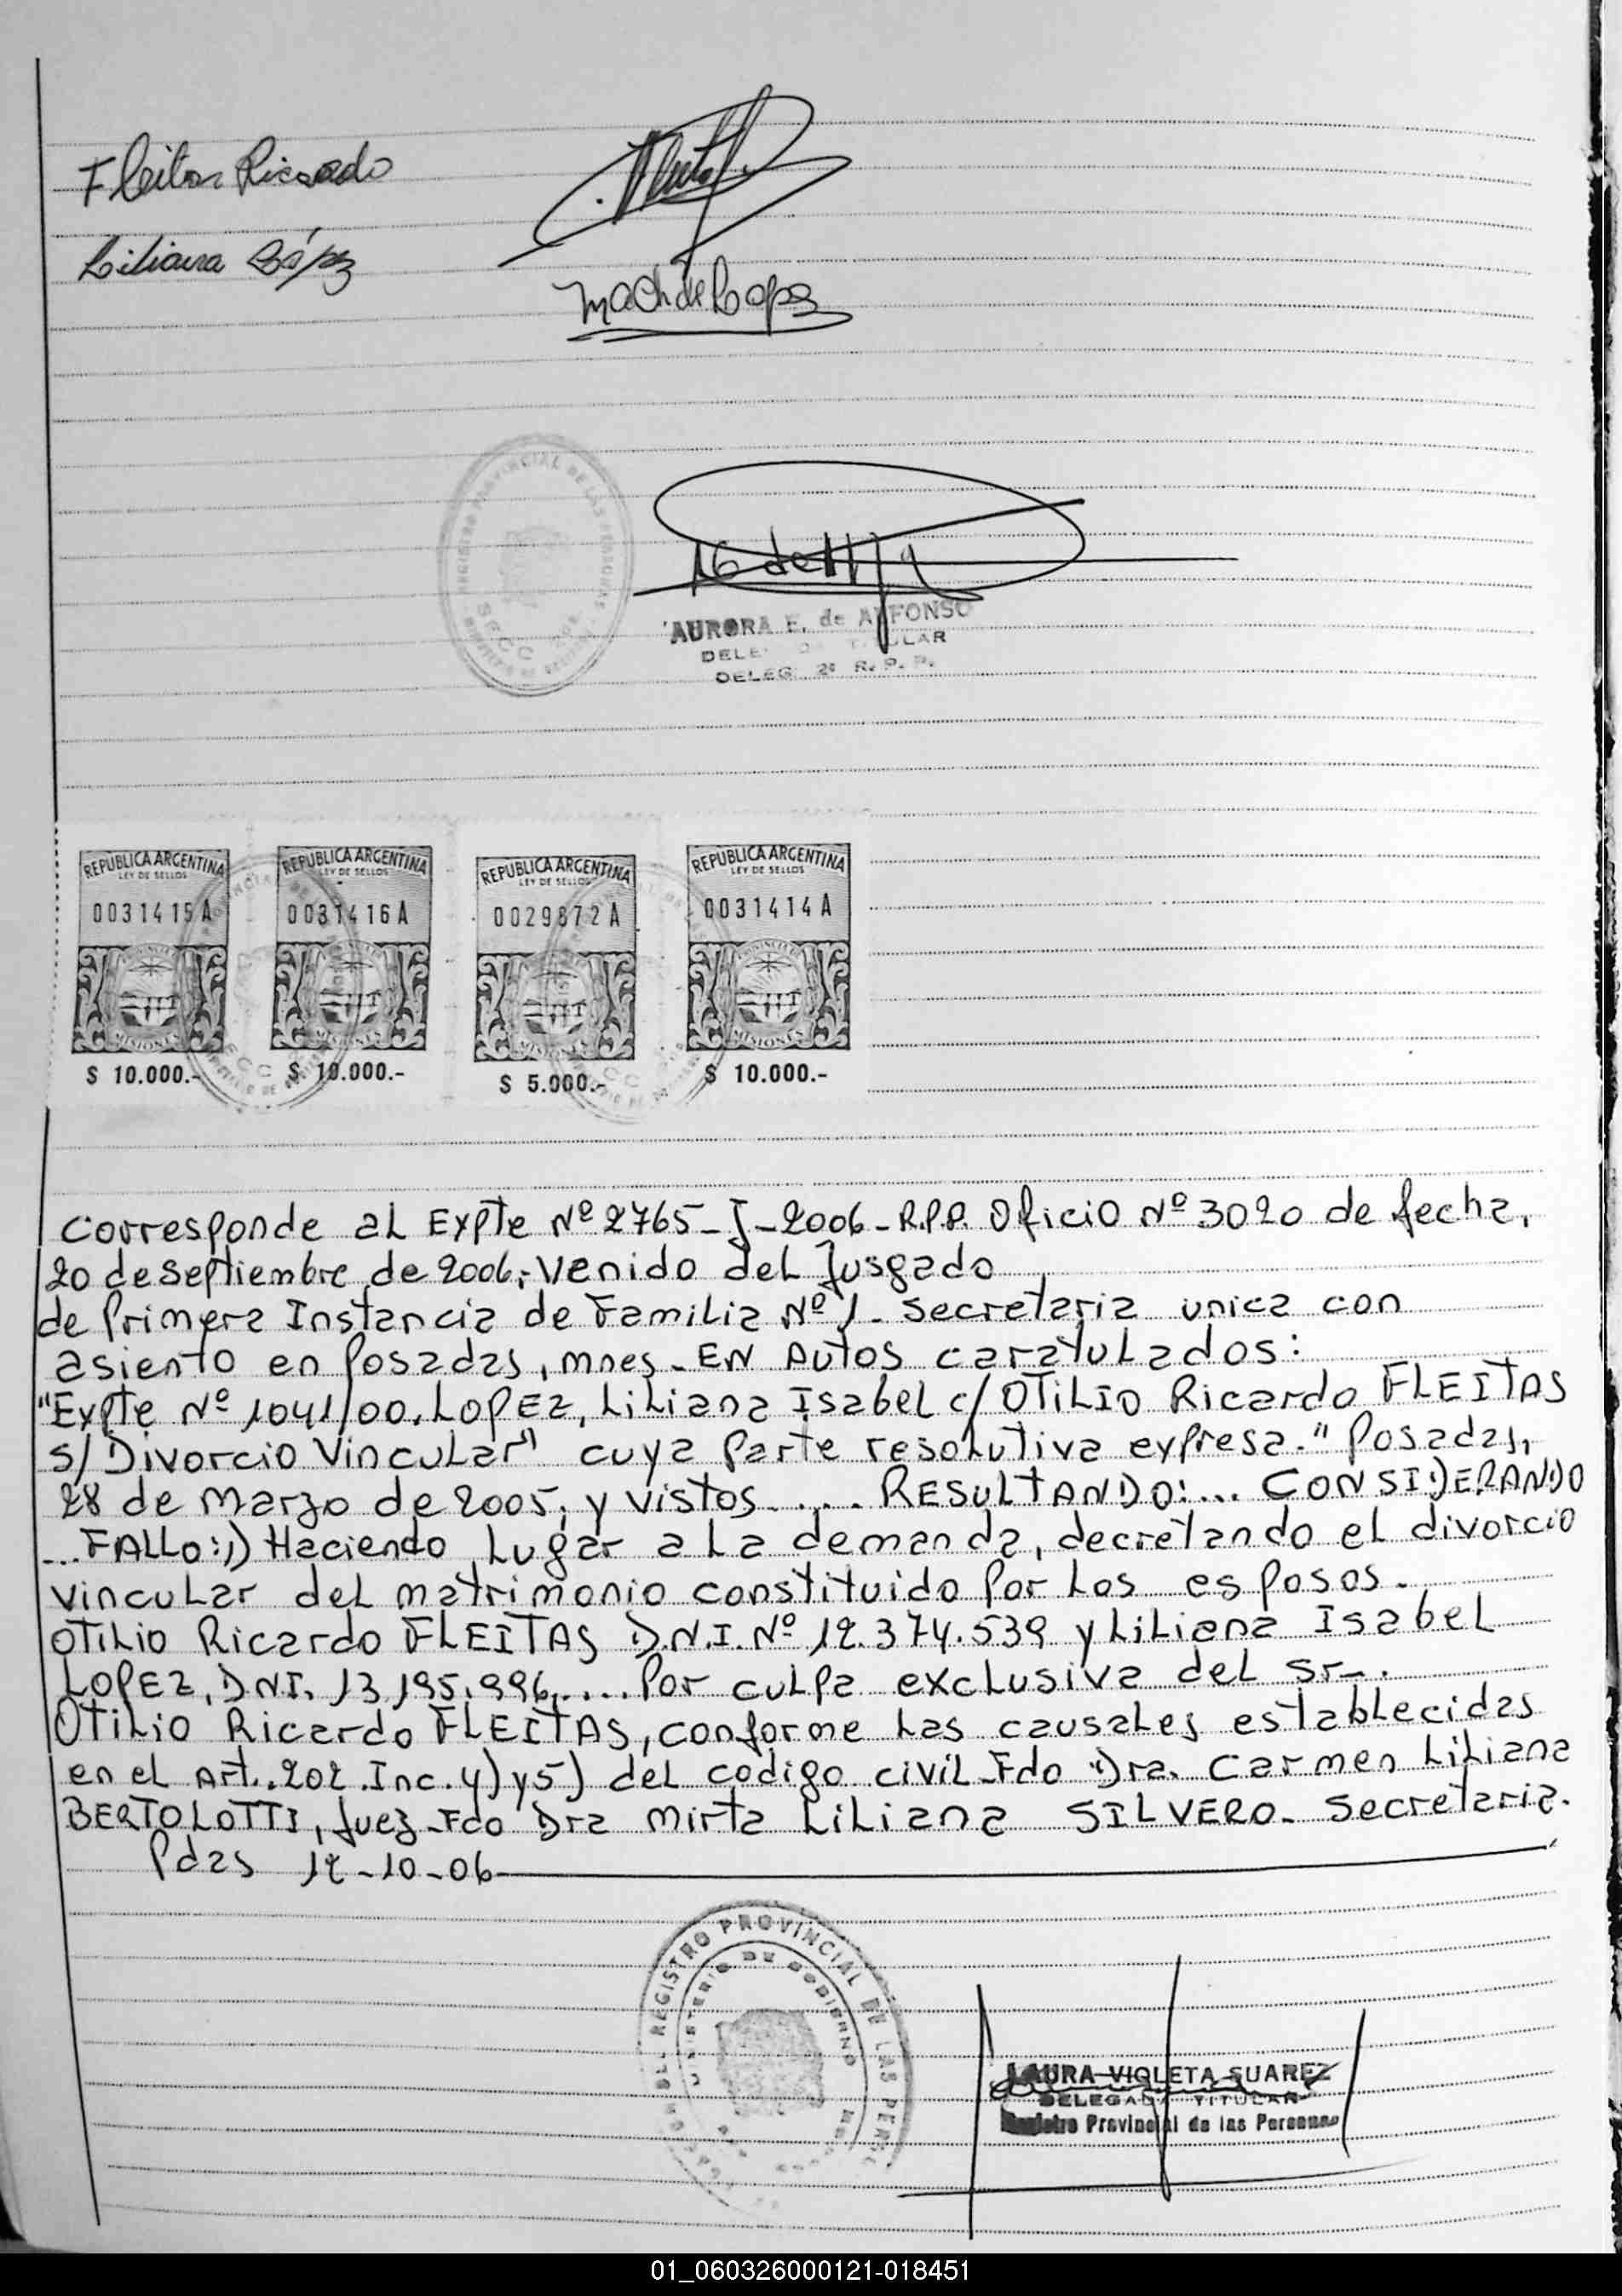 Fleitas Ricardo
Liliana López
M a Ch de Lopez
AURORA E. de ALFONSO
TITULAR
DELEG. 2ª R. P. P.
REPUBLICA ARGENTINA
LEY DE SELLOS
0031415 A
MISIONES
$ 10.000.-
REPUBLICA ARGENTINA
LEY DE SELLOS
0031416 A
MISIONES
$ 10.000.-
REPUBLICA ARGENTINA
LEY DE SELLOS
0029872 A
MISIONES
$ 5.000.-
REPUBLICA ARGENTINA
LEY DE SELLOS
0031414 A
MISIONES
$ 10.000.-
Corresponde al Expte Nº 2765-J-2006-R.P.P. Oficio Nº 3020 de fecha,
20 de septiembre de 2006; venido del Jusgado
de Primera Instancia de Familia Nº 1- Secretaria unica con
asiento en Posadas, mnes- EN Autos caratulados:
"Expte Nº 1041/00. LOPEZ, Liliana Isabel c/ OTILIO Ricardo FLEITAS
s/ Divorcio Vincular" cuya parte resolutiva expresa. "Posadas,
28 de marzo de 2005; y vistos..... RESULTANDO:... CONSIDERANDO
...FALLO: 1) Haciendo lugar a la demanda, decretando el divorcio
vincular del matrimonio constituido por los esposos.
OTILIO Ricardo FLEITAS D.N.I. Nº 12.374.539 y Liliana Isabel
LOPEZ, DNI. 13.195.996..... Por culpa exclusiva del Sr-.
OTILIO Ricardo FLEITAS, conforme las causales establecidas
en el Art. 202. Inc. 4) y 5) del codigo civil- Fdo Dra. Carmen Liliana
BERTOLOTTI, Juez- Fdo Dra Mirta Liliana SILVERO- Secretaria.
Pdas 12-10-06
REGISTRO PROVINCIAL DE LAS PERS
MINISTERIO DE GOBIERNO
LAURA VIOLETA SUAREZ
DELEGADA TITULAR
Registro Provincial de las Personas
01_060326000121-018451